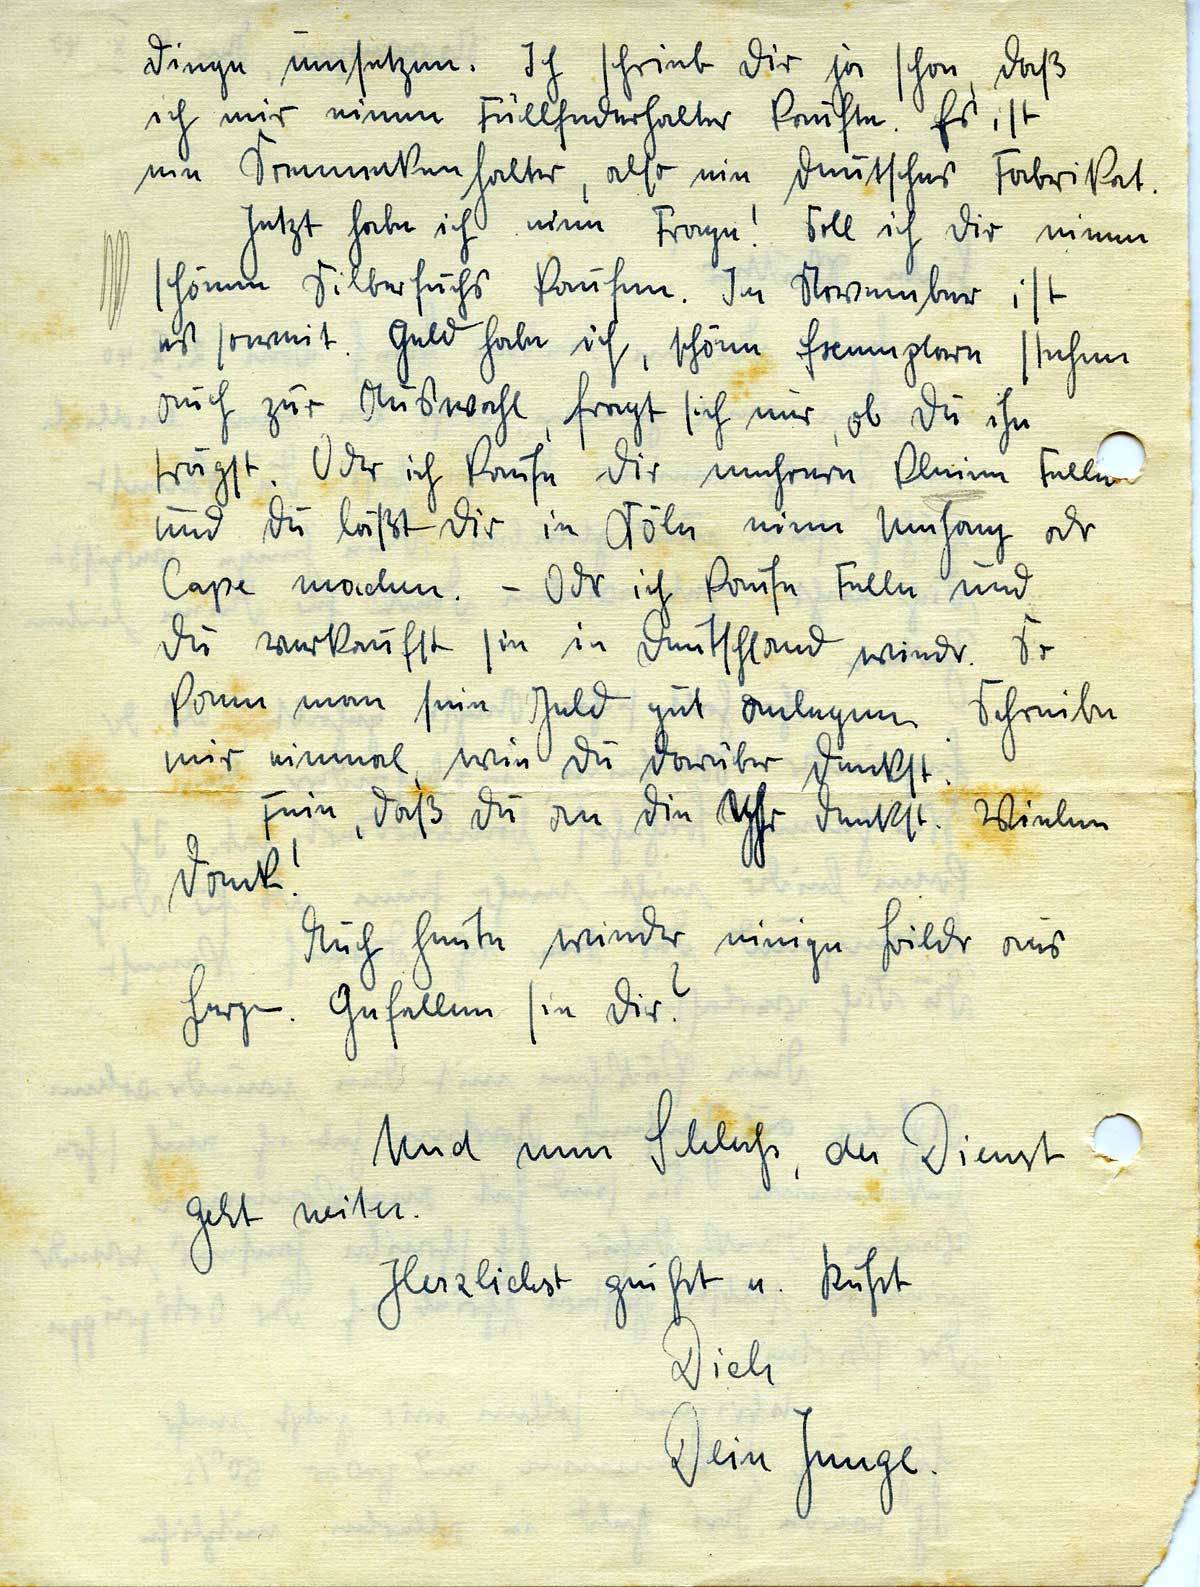 Dinge umsetzen. Ich schrieb Dir ja schon, daß
ich mir einen Füllfederhalter kaufte. Es ist
ein Soenneckenhalter, also ein deutsches Fabrikat.
Jetzt habe ich eine Frage! Soll ich Dir einen
schönen Silberfuchs kaufen. Im November ist
es soweit. Geld habe ich, schöne Exemplare stehen
auch zur Auswahl, fragt sich nur, ob Du ihn
trägst. Oder ich kaufe Dir mehrere kleine Felle
und Du läßt Dir in Köln einen Umhang odr
Cape machen. – Odr ich kaufe Felle und
Du verkaufst sie in Deutschland wiedr. So
kann man sein Geld gut anlegen. Schreibe
mir einmal, wie Du darüber denkst.
Fein, daß Du an die Uhr denkst. Vielen
Dank!
Auch heute wieder einige Bildr aus
. Gefallen sie Dir?
Und nun Schluß, der Dienst
geht weiter.
Herzlichst grüßt u. küßt
Dich
Dein Junge.